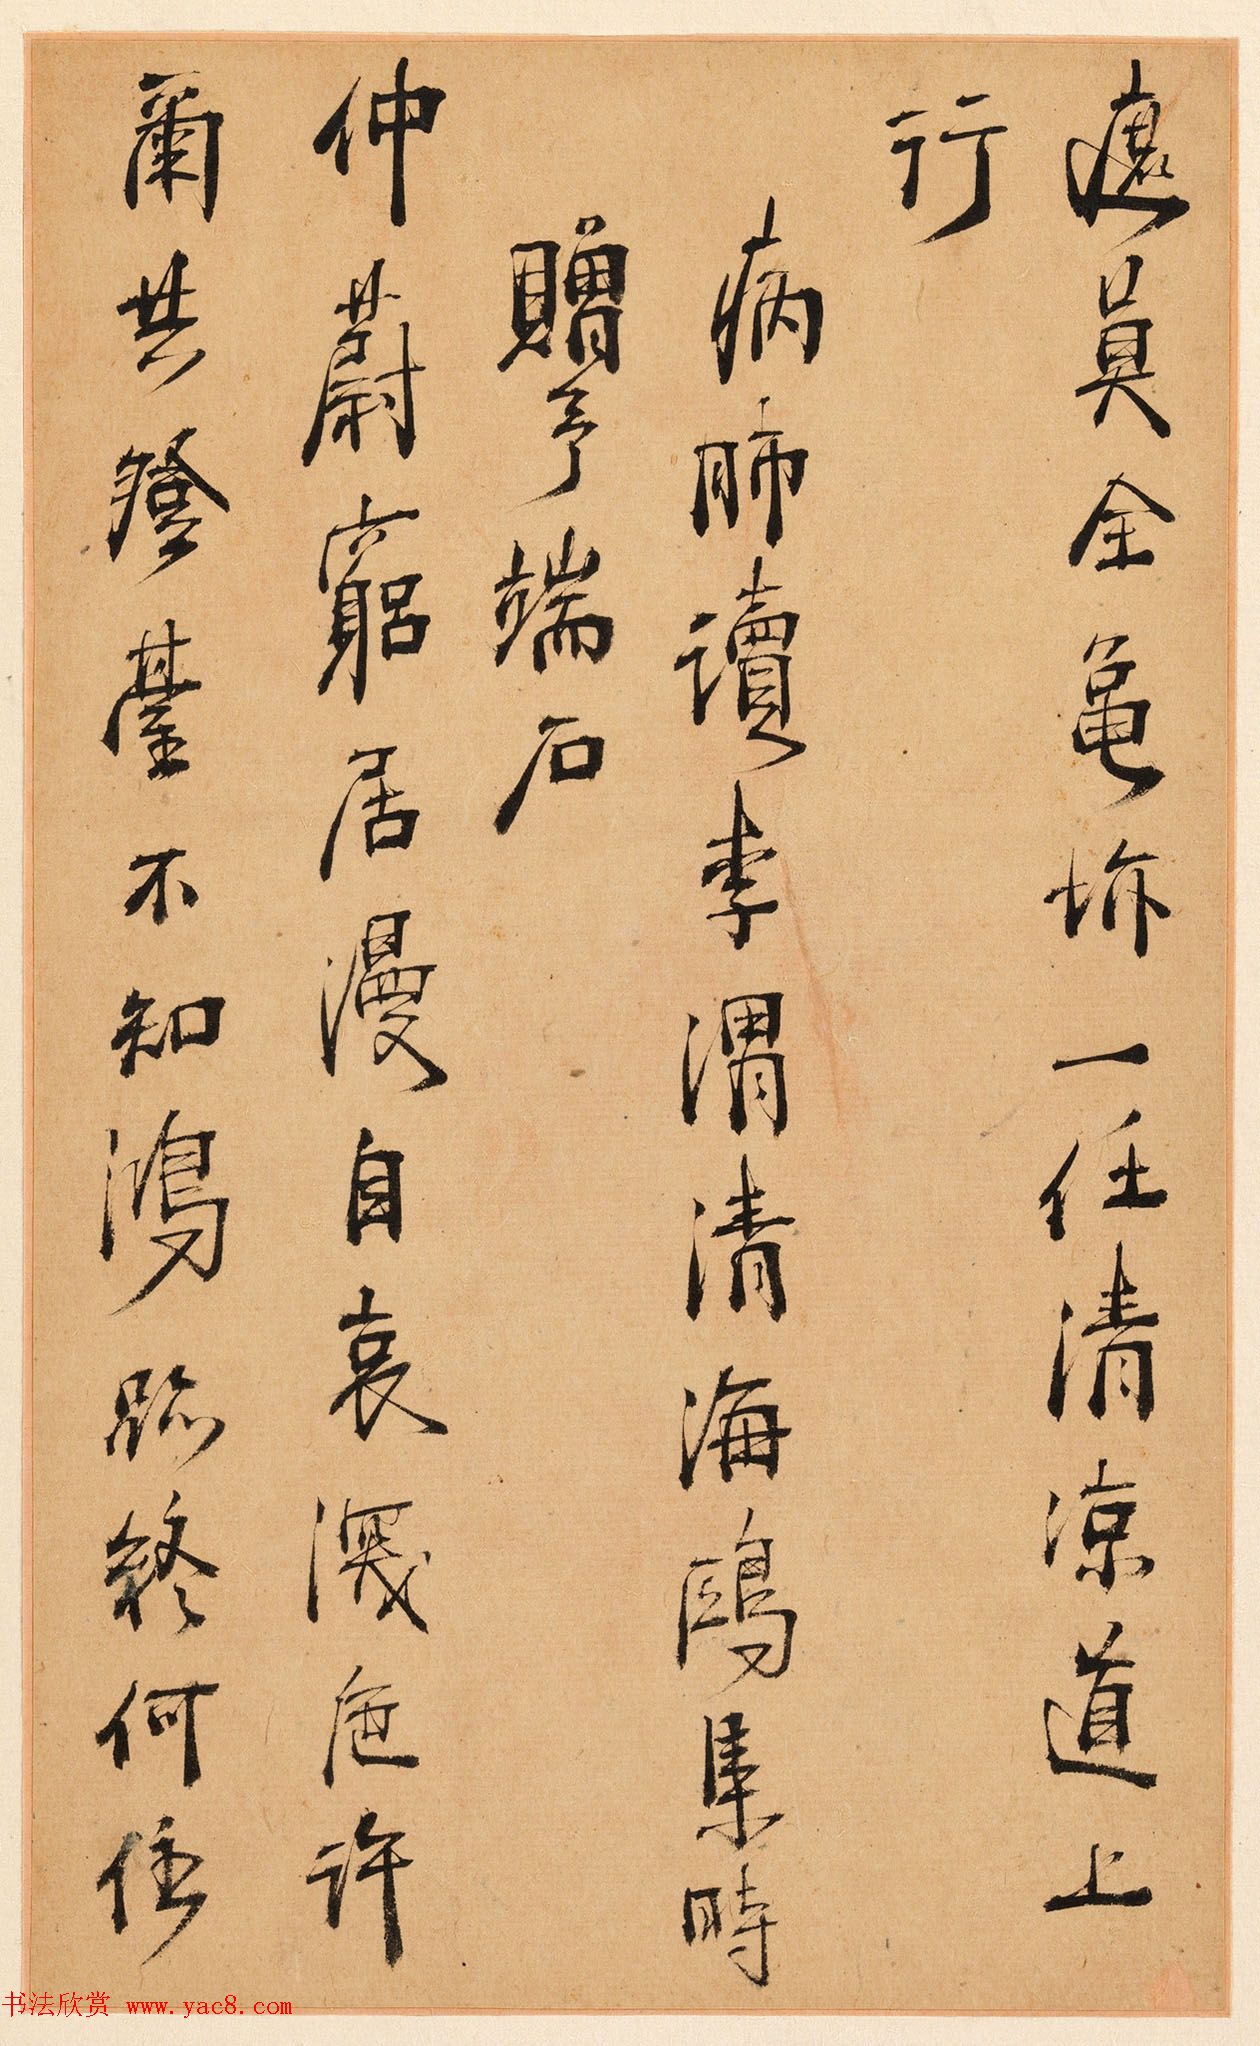 全龜坼一任清凉道上
行
病肺讀李渭清海鷗集時
贈予端石
仲蔚窮居漫自哀卮許
爾共登臺不知鴻跡終何住
书法欣赏 www.yac8.com